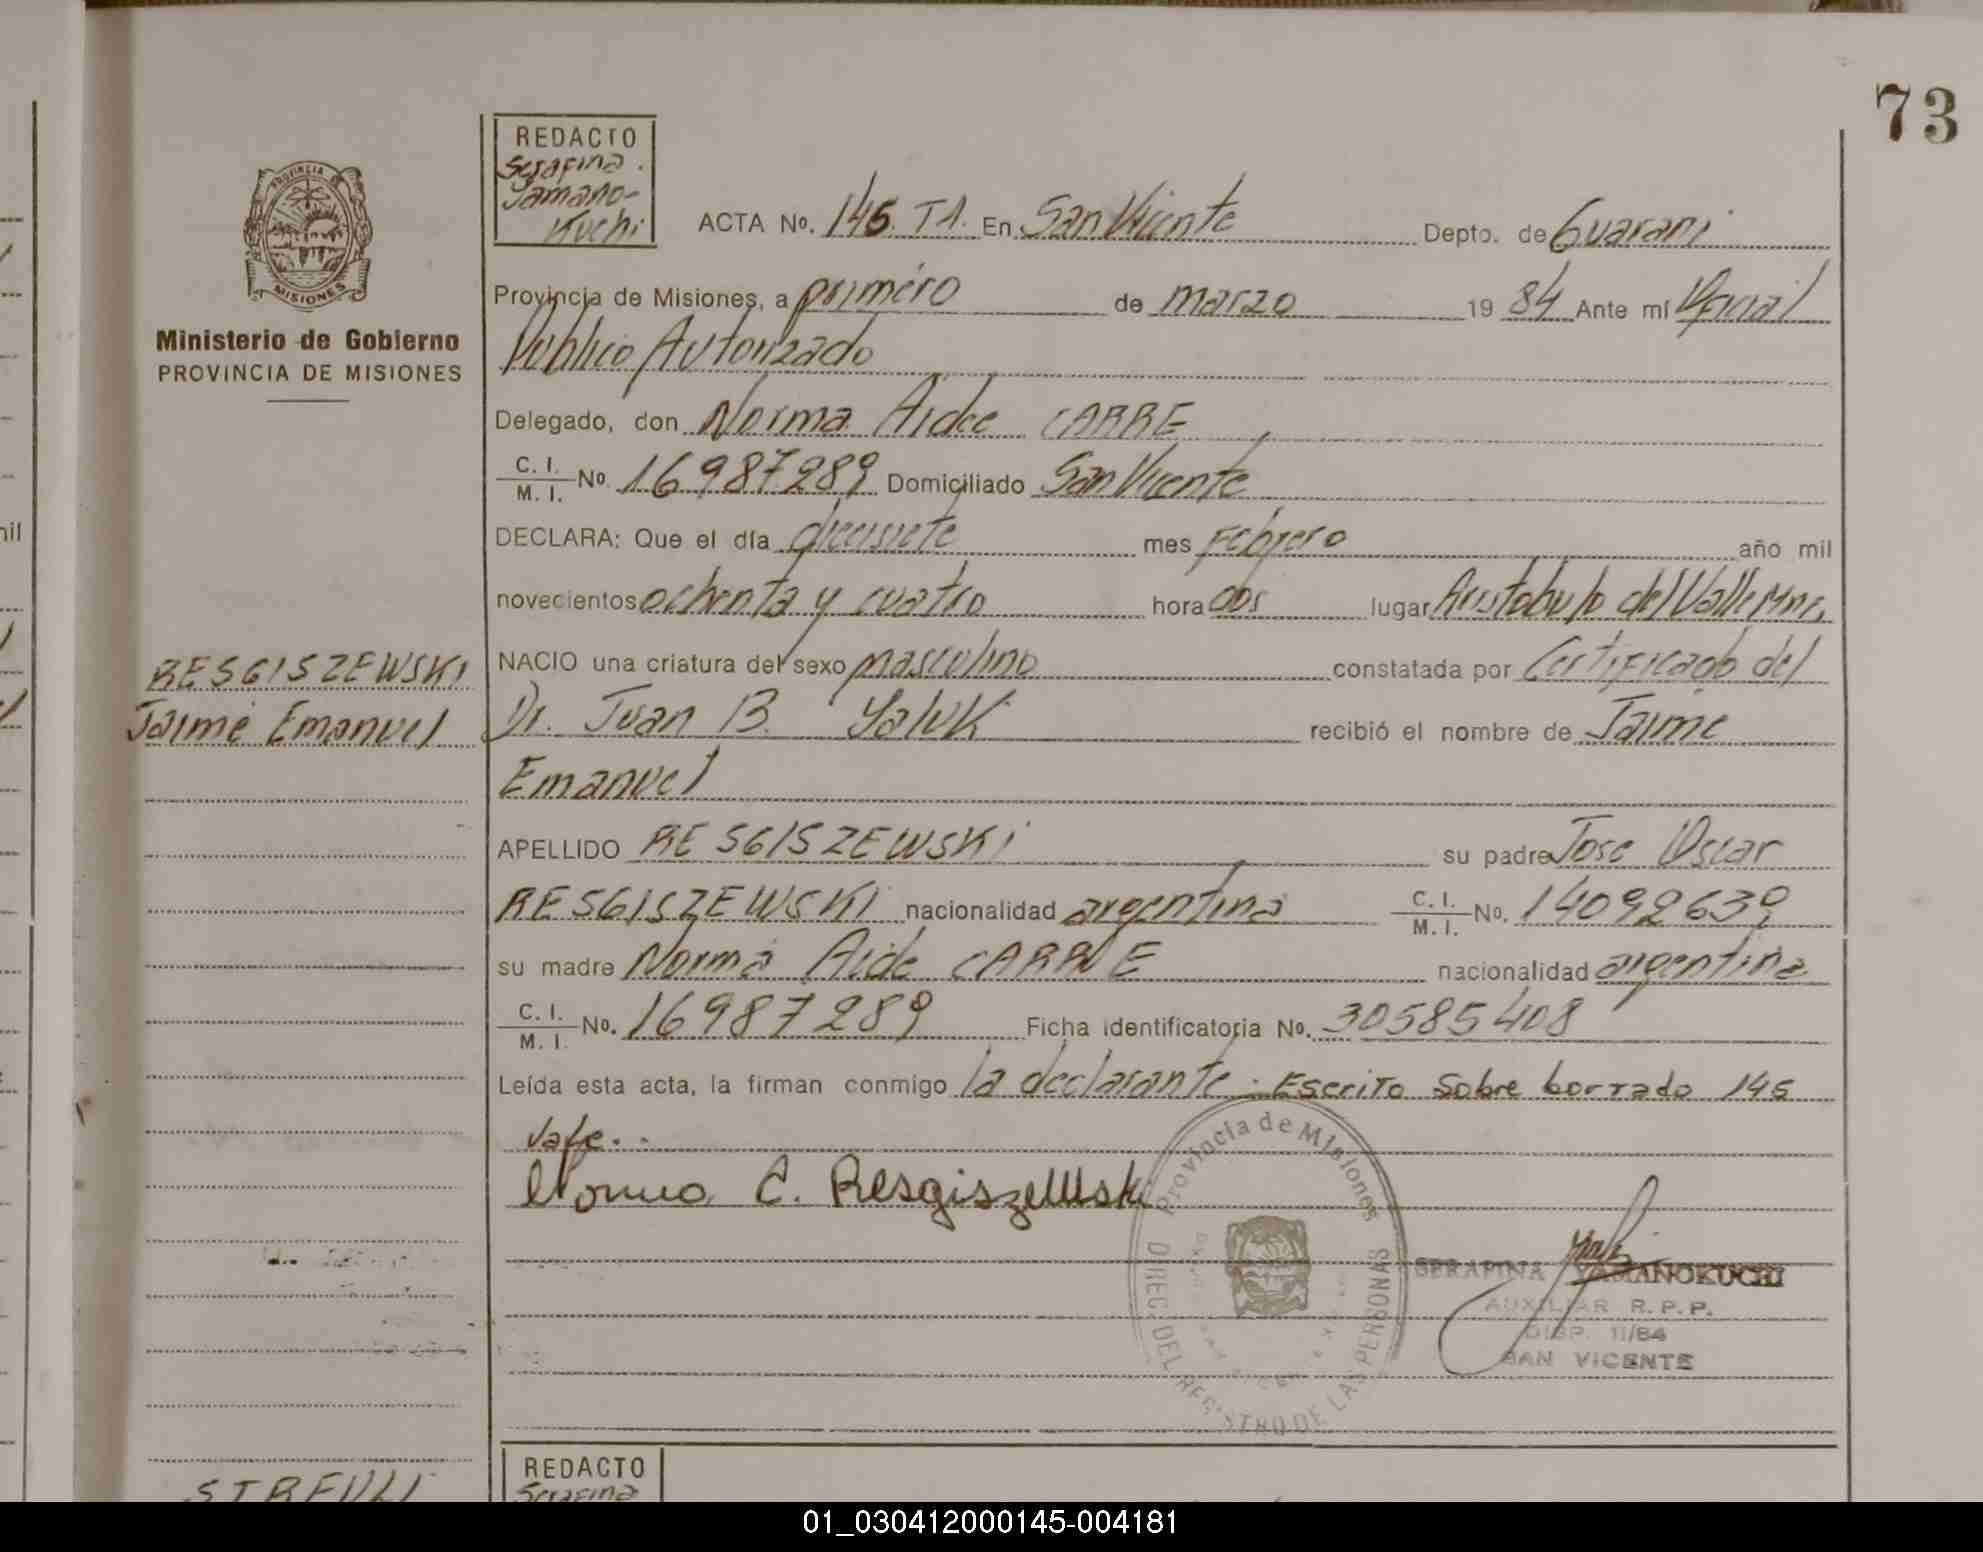 73
REDACTO
Serafina
Yamano-
Kuchi
ACTA No. 145. T1. En San Vicente Depto. de Guarani
PROVINCIA DE
MISIONES
Ministerio de Gobierno
PROVINCIA DE MISIONES
Provincia de Misiones, a primero de marzo 1984 Ante mí Oficial
Publico Autorizado
Delegado, don Norma Aidee CARRE
C. I. / M. I. No. 16987289 Domiciliado San Vicente
DECLARA: Que el día diecisiete mes Febrero año mil
novecientos ochenta y cuatro hora dos lugar Aristobulo del Valle Mnes,
RESGISZEWSKI
Jaime Emanuel
NACIO una criatura del sexo masculino constatada por Certificado del
Dr. Juan B. Yaluk recibió el nombre de Jaime
Emanuel
APELLIDO RESGISZEWSKI su padre Jose Oscar
RESGISZEWSKI nacionalidad argentina C. I. / M. I. No. 14092639
su madre Norma Aide CARRE nacionalidad argentina
C. I. / M. I. No. 16987289 Ficha identificatoria No. 30585408
Leída esta acta, la firman conmigo la declarante. Escrito sobre borrado 145
vale..
Norma C. Resgiszewski
Provincia de Misiones
DIREC. DEL REGISTRO DE LAS PERSONAS
SERAFINA YAMANOKUCHI
AUXILIAR R. P. P.
DISP. 11/84
SAN VICENTE
REDACTO
Serafina
01_030412000145-004181